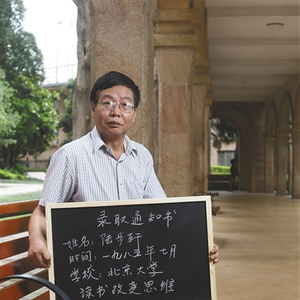 录取通知书
姓名:陆步轩
时间:一九八五年七月
学校:北京大学
读书改变思维